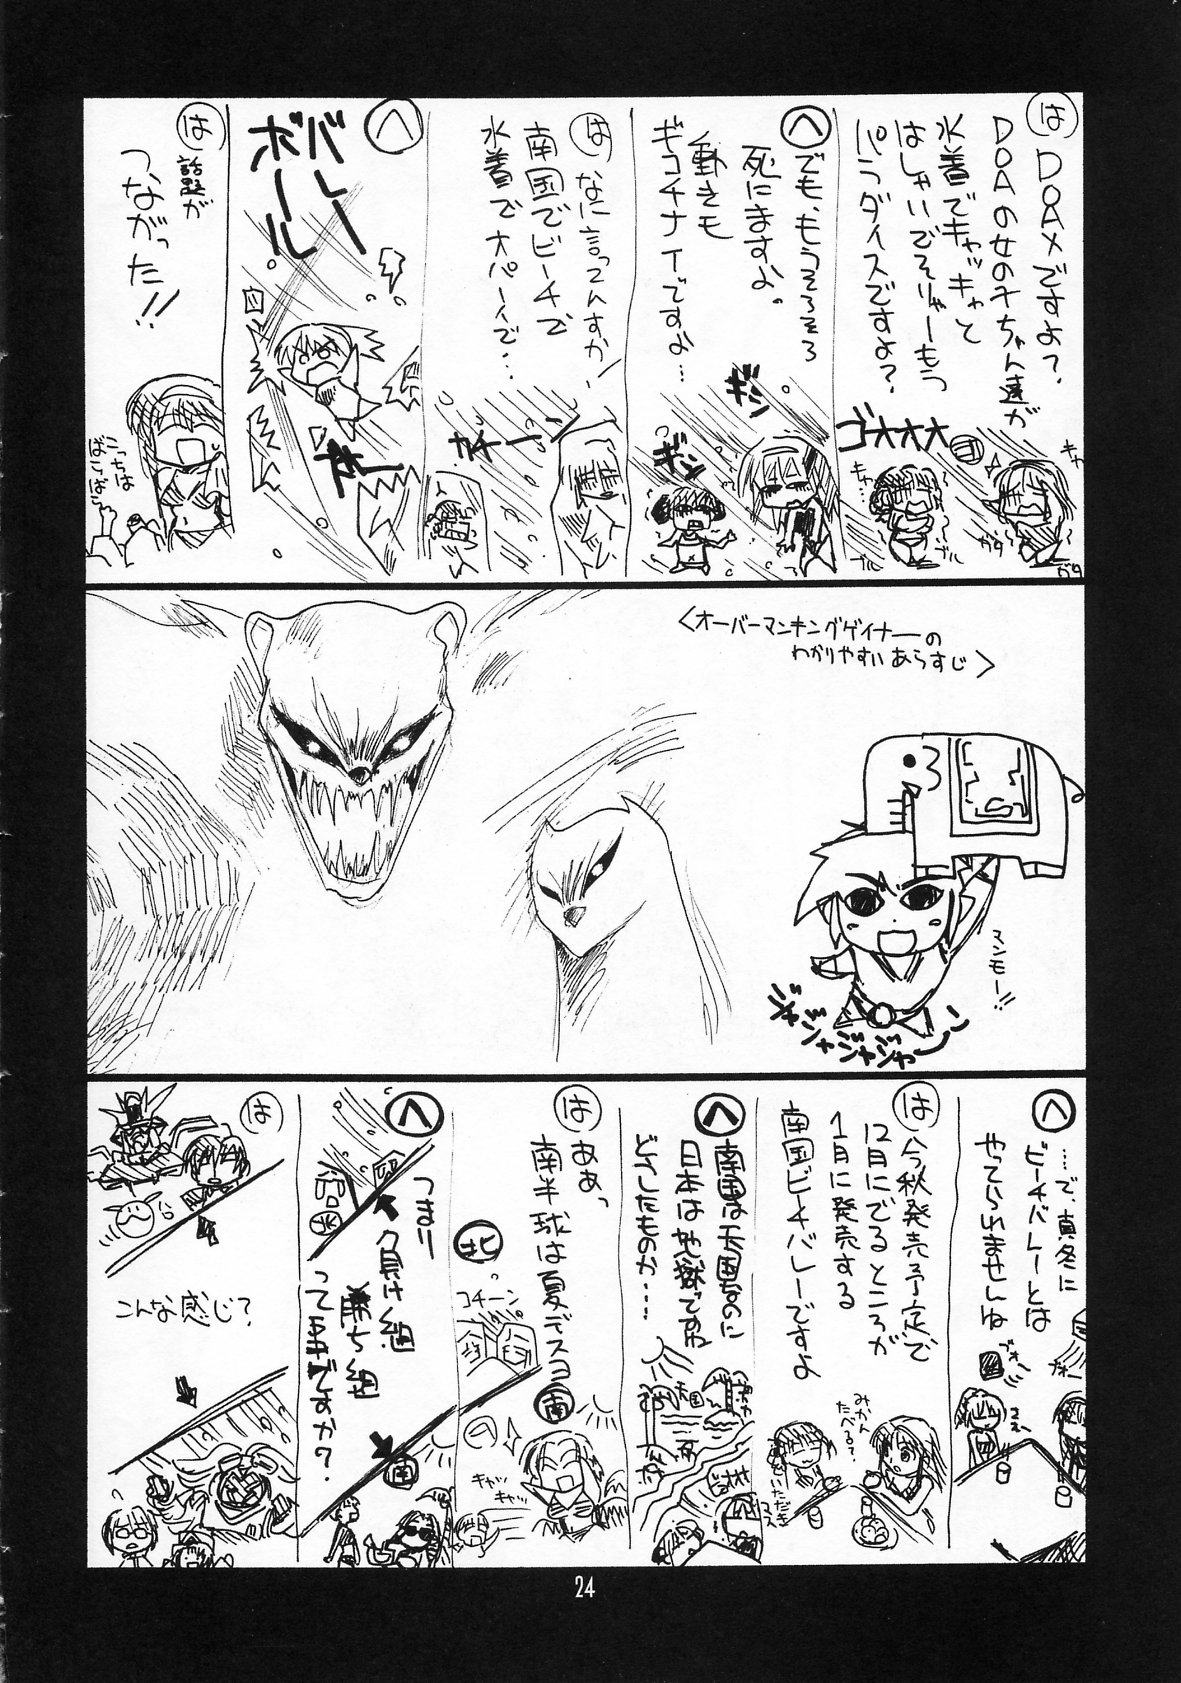 は
DOAXですよ?
DOAの女のチちゃん達が
水着でキャッキャと
はしゃいでそりゃーもう
パラダイスですよ?
キャ
キャ…
ガタ
ブル
ブル
へ
でも、もうそろそろ
死にますよ。
動きも
ギコチナイですよ…
ギシ
ギシ
は
なに言ってんすか!
南国でビーチで
水着で大パーイで…
カチーン
へ
バレー
ボール
は
話題が
つながった!!
こっちは
ばらばら
<オーバーマンキングゲイナーの
わかりやすいあらすじ>
マンモー!!
ジャジャジャジャーン
へ
……で、真冬に
ビーチバレーとは
やってられませんね
ブォー
ブォー
は
今秋発売予定で
12月にでるところが
1月に発売する
南国ビーチバレーですよ
みかん
たべる?
へ
南国は天国なのに
日本は地獄でね
どうしたものか……
天国
は
ああっ
南半球は夏デスヨ
南
北
コチーン
キャッ
キャッ
へ
つまり
負け組
勝ち組
ってヤツですか?
南
は
こんな感じ?
24